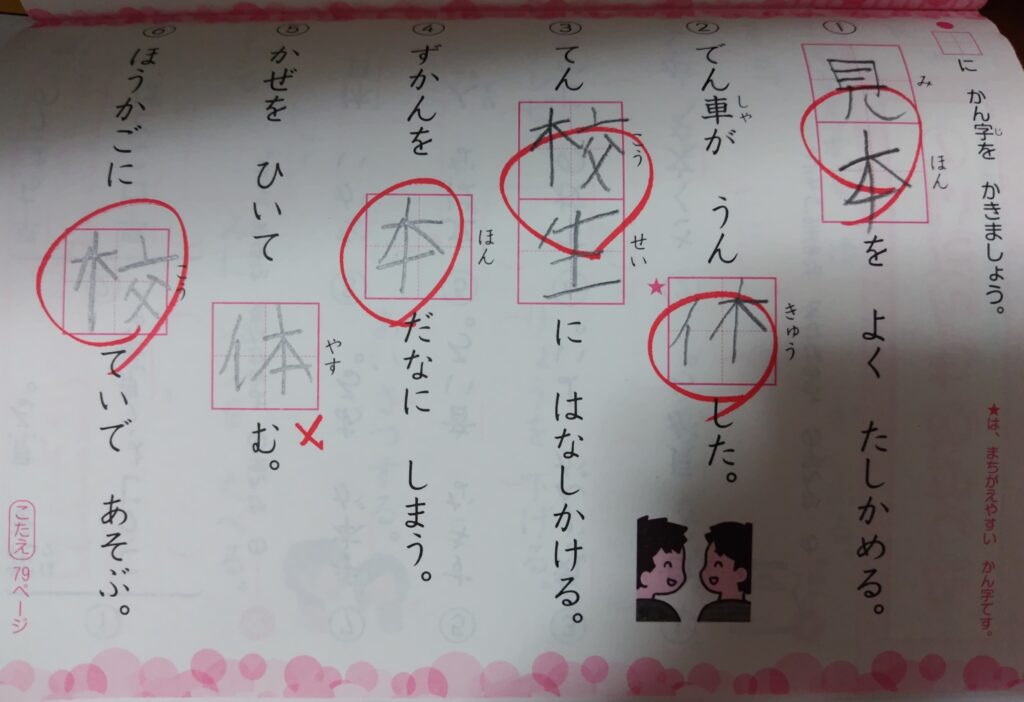 に かん字を かきましょう。
じ
★は、まちがえやすい かん字です。
① 見本を よく たしかめる。
み ほん
② でん車が うん休した。
しゃ ★ きゅう
③ てん校生に はなしかける。
こう せい
④ ずかんを 本だなに しまう。
ほん
⑤ かぜを ひいて 体む。
やす
⑥ ほうかごに 校ていで あそぶ。
こう
こたえ 79ページ